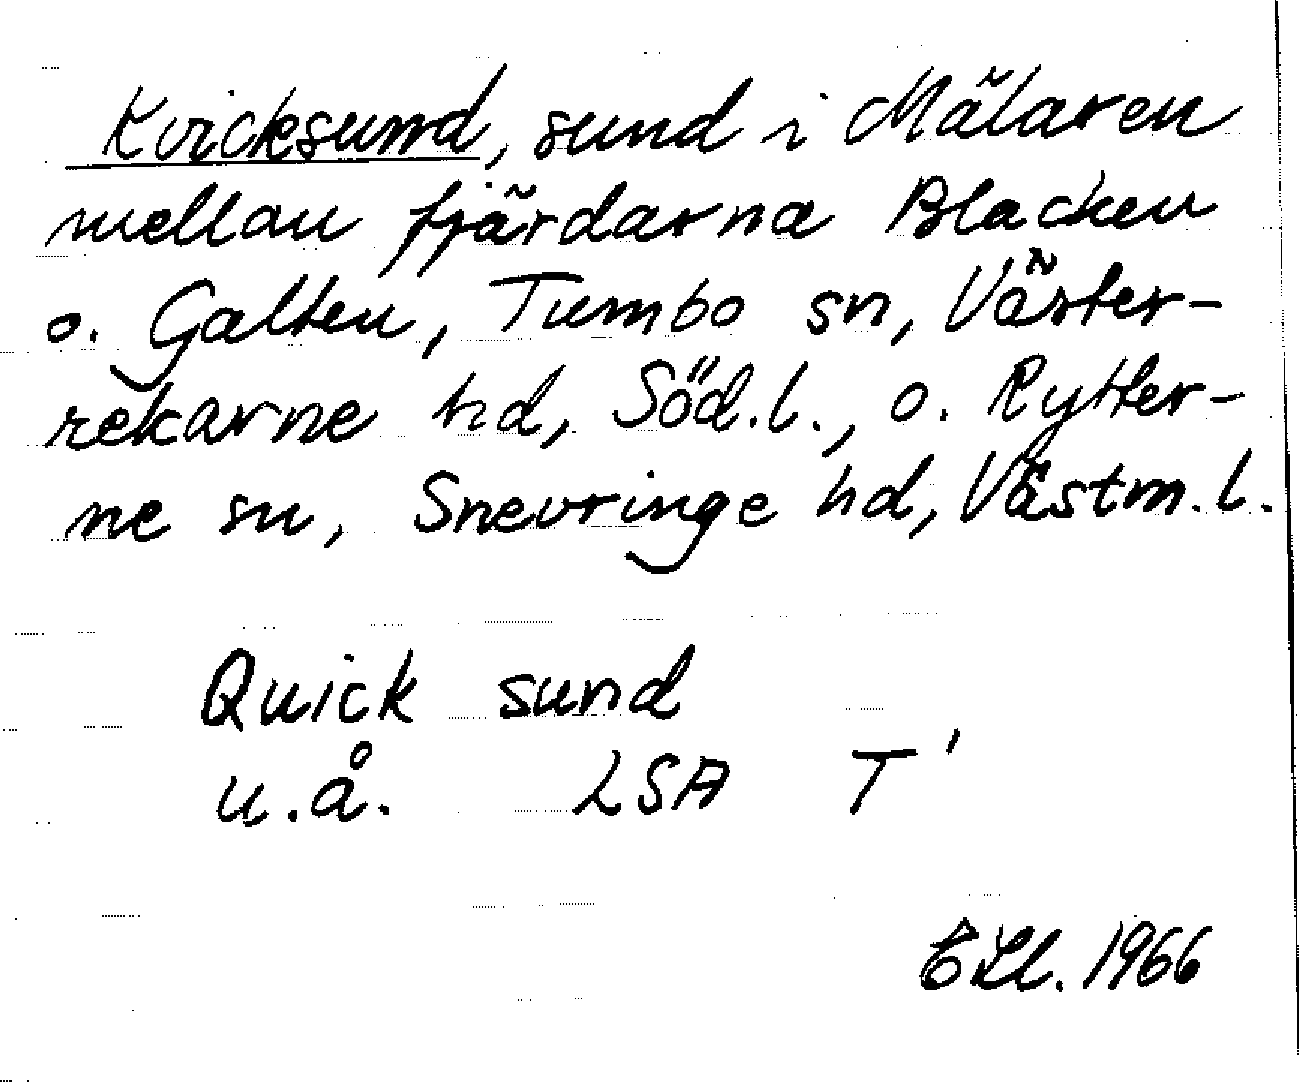 Kvicksund, sund i Mälaren
mellan fjärdarna Blacken
o. Galten, Tumbo sn, Väster-
rekarne hd, Söd.l., o. Rytter-
ne sn, Snevringe hd, Västm.l.
Quick sund
u.å. LSA T'
1966